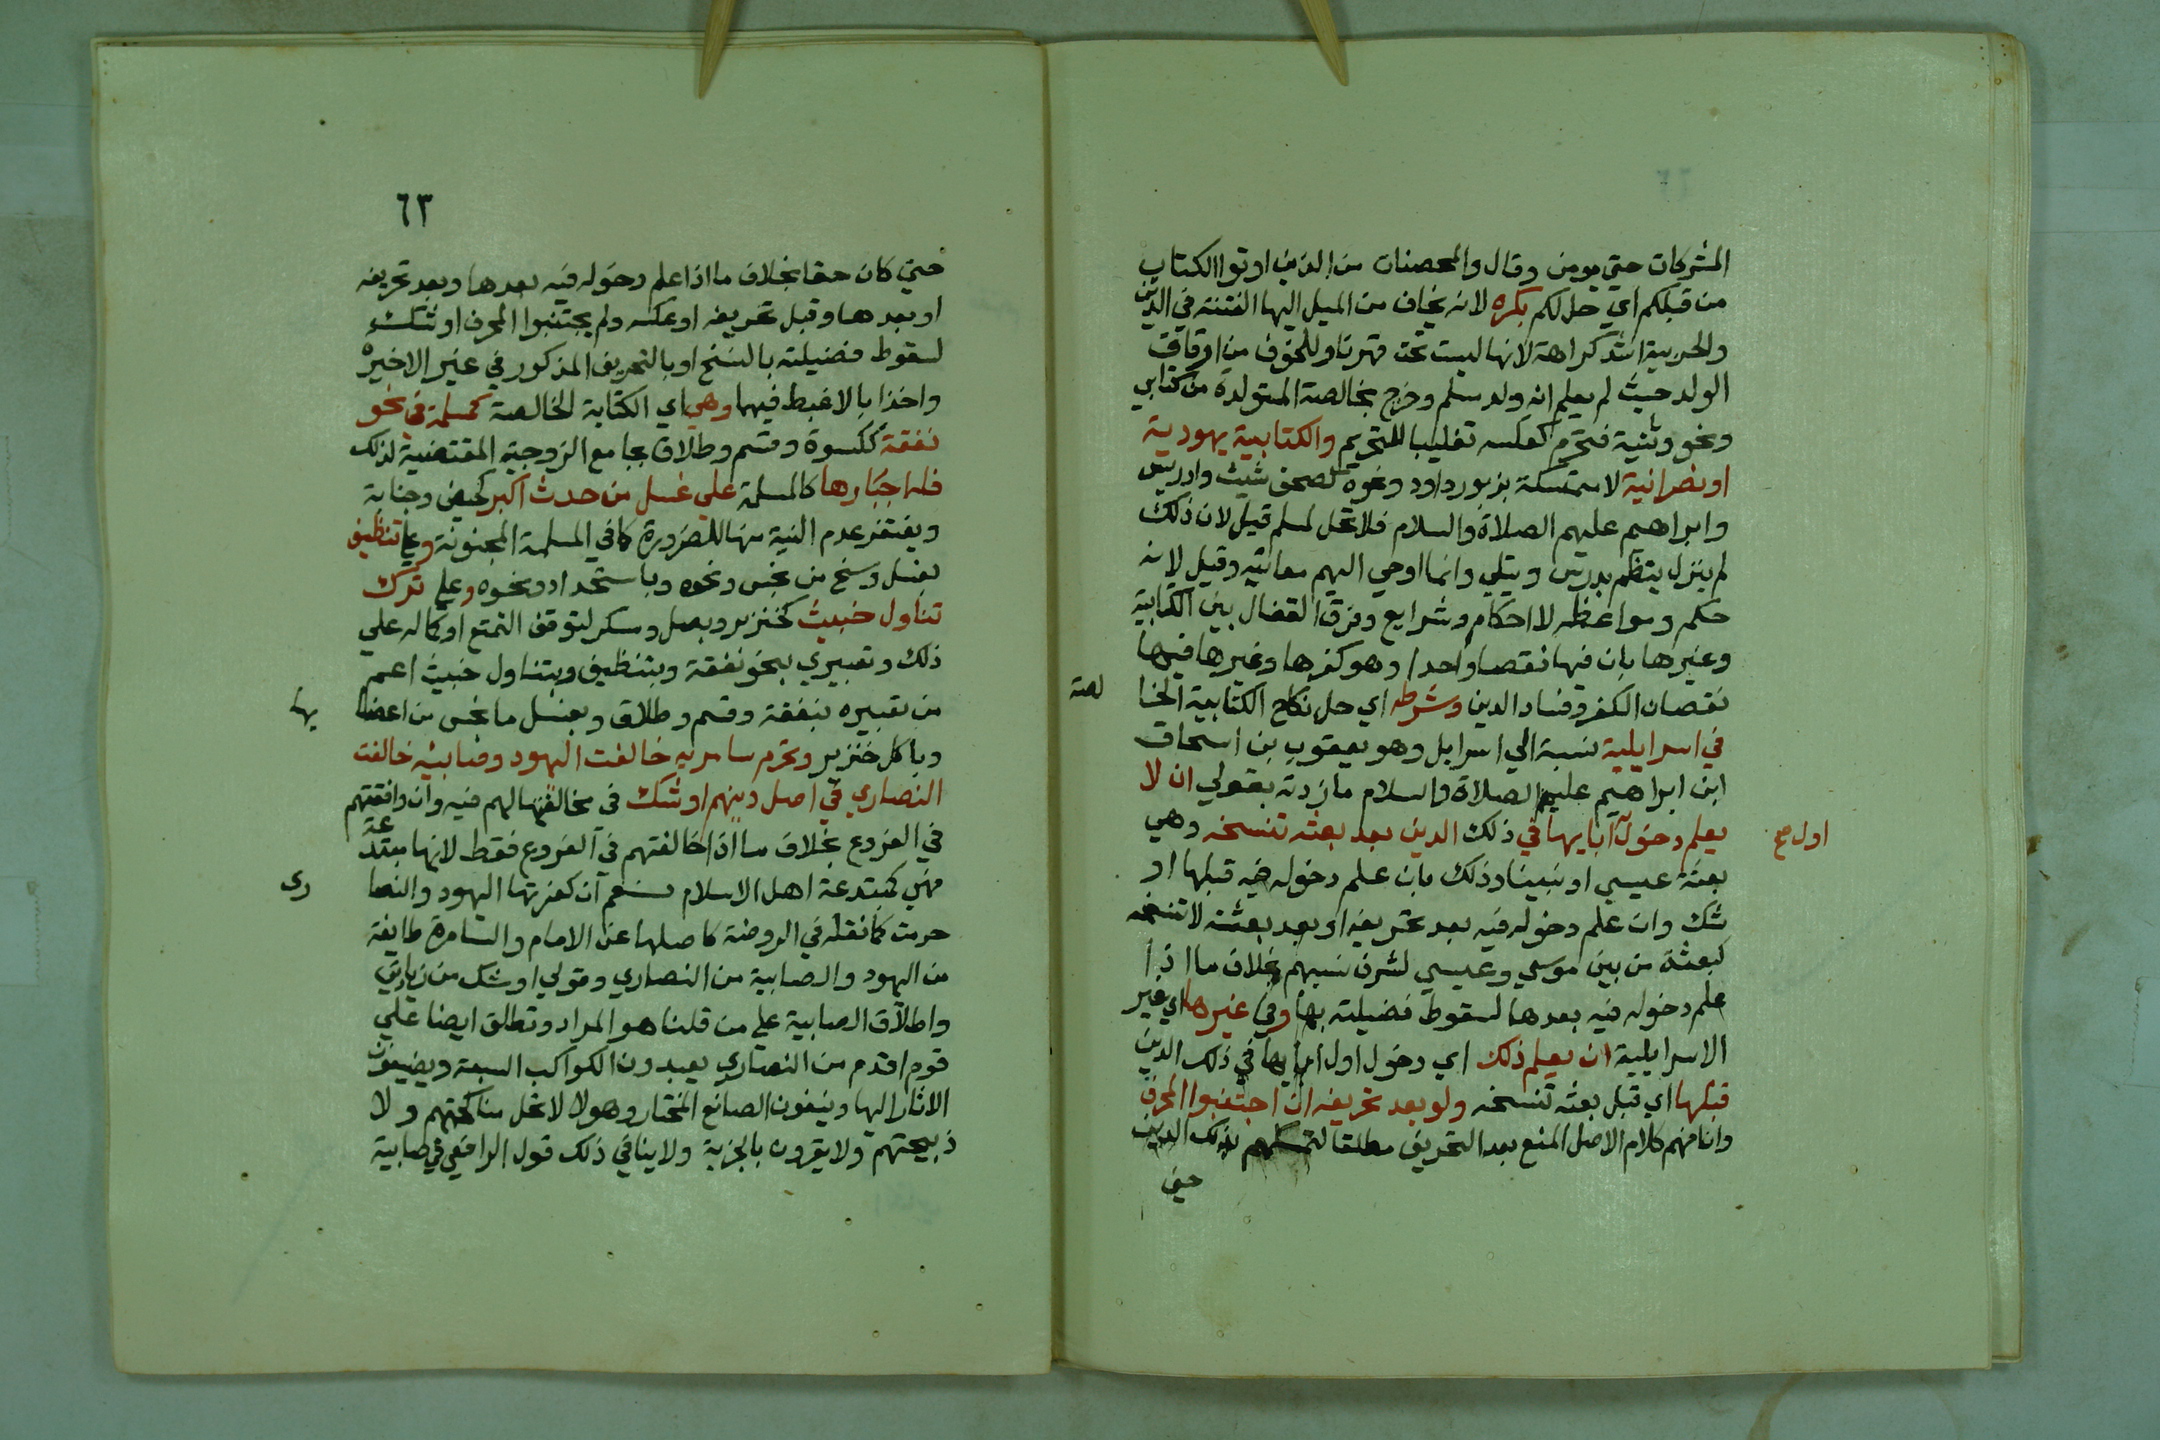 المشركات حتي يومن وقال والمحصنات من الذين اوتوا الكتاب
من قبلكم اي حل لكم بكره لانه يخاف من الميل اليها الفتنة في الدين
والحربية اشد كراهة لانها ليست تحت قهرنا وللخوف من ارقاق
الولد حيث لم يعلم انه ولد مسلم وخرج بخالصة المتولدة من كتابي
ونحو وثنية فتحرم كعكسه تغليبا للتحريم والكتابية يهودية
او نصرانية لا متمسكة بزبور داود ونحوه كصحف شيث وادريس
وابراهيم عليهم الصلاة والسلام فلا تحل لمسلم قيل لان ذلك
لم ينزل بنظم يدرس ويتلي وانما اوحي اليهم معانيه وقيل لانه
حكم ومواعظ لا احكام وشرايع وفرق القفال بين الكتابية
وغيرها بان فيها نقصا واحدا وهو كفرها وغيرها فيها
نقصان الكفر وفساد الدين وشرطه اي حل نكاح الكتابية الخا
لصة
في اسرايلية نسبة الي اسرايل وهو يعقوب بن اسحاق
ابن ابراهيم عليهم الصلاة والسلام ما زدته بقولي ان لا
يعلم دخول آبايها في ذلك الدين بعد بعثة تنسخه وهي
اول صح
بعثة عيسي او نبينا وذلك بان علم دخوله فيه قبلها او
شك وان علم دخوله فيه بعد تحريفه او بعد بعثة لا تنسخه
كبعثة من بين موسي وعيسي لشرف نسبهم بخلاف ما اذا
علم دخوله فيه بعدها لسقوط فضيلته بها وفي غيرها اي غير
الاسرايلية ان يعلم ذلك اي دخول اول ابايها في ذلك الدين
قبلها اي قبل بعثة تنسخه ولو بعد تحريفه ان اجتنبوا المحرف
وان افهم كلام الاصل المنع بعد التحريف مطلقا لتمسكهم بذلك الدين
حين
٦٣
حين كان حقا بخلاف ما اذا علم دخوله فيه بعدها وبعد تحريفه
او بعدها وقبل تحريفه او عكسه ولم يجتنبوا المحرف او شك
لسقوط فضيلته بالنسخ او بالتحريف المذكور في غير الاخيرة
واخذا بالاغبط فيها وهي اي الكتابة الخالصة كمسلمة في نحو
نفقة ككسوة وقسم وطلاق بجامع الزوجية المقتضية لذلك
فله اجبارها كالمسلمة علي غسل من حدث اكبر كحيض وجنابة
ويغتفر عدم النية منها للضرورة كما في المسلمة المجنونة وعلي تنظيف
بغسل وسخ من نجس ونحوه وباستحداد ونحوه وعلي ترك
تناول خبيث كخنزير وبصل ومسكر لتوقف التمتع او كماله علي
ذلك وتعبيري بنحو نفقة وبتنظيف وبتناول خبيث اعم
من تعبيره بنفقة وقسم وطلاق وبغسل ما نجس من اعضا
يها
وباكل خنزير وتحرم سامريه خالفت اليهود وصابئيه خالفت
النصاري في اصل دينهم او شك في مخالفتها لهم فيه وان وافقتهم
في الفروع بخلاف ما اذا خالفتهم في الفروع فقط لانها مبتدعة
فهي كمبتدعة اهل الاسلام نعم ان كفرتها اليهود والنصا
ري
حرمت كما نقله في الروضة كاصلها عن الامام والسامرة طايفة
من اليهود والصابية من النصاري وقولي او شك من زيادتي
واطلاق الصابية علي من قلنا هو المراد وتطلق ايضا علي
قوم اقدم من النصاري يعبدون الكواكب السبعة ويضيفون
الاثار اليها وينفون الصانع المختار وهولا لا تحل مناكحتهم ولا
ذبيحتهم ولا يقرون بالجزية ولا ينافي ذلك قول الرافعي في صابية